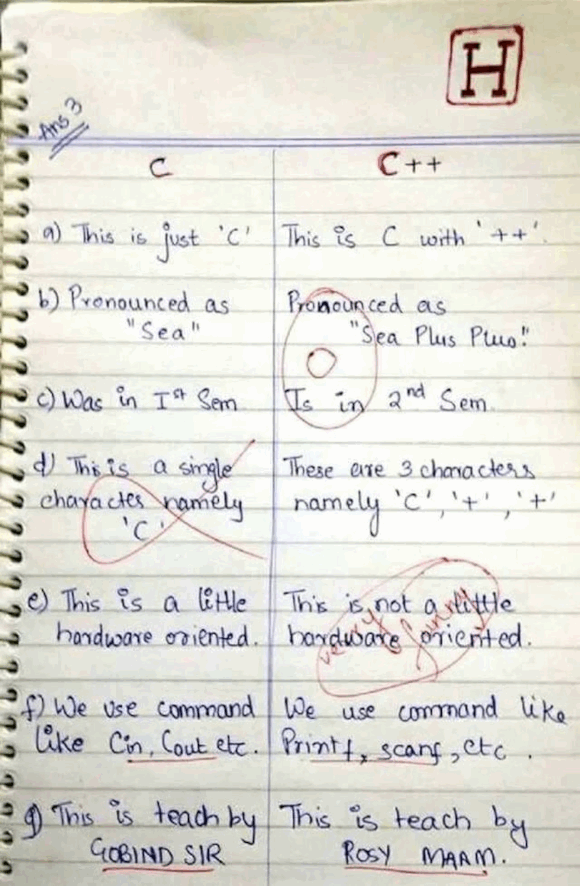 H
Ans 3
C
C++
a) This is just 'C'
This is C with '++'.
b) Pronounced as
"Sea"
Pronounced as
"Sea Plus Plus!"
0
c) Was in Ist Sem
Is in 2nd Sem.
d) This is a single
character namely
'C'
These are 3 characters
namely 'C', '+', '+'
e) This is a little
hardware oriented.
This is not a little
hardware oriented.
very funny
f) We use command
like Cin, Cout etc.
We use command like
Printf, scanf, etc.
g) This is teach by
GOBIND SIR
This is teach by
ROSY MAAM.